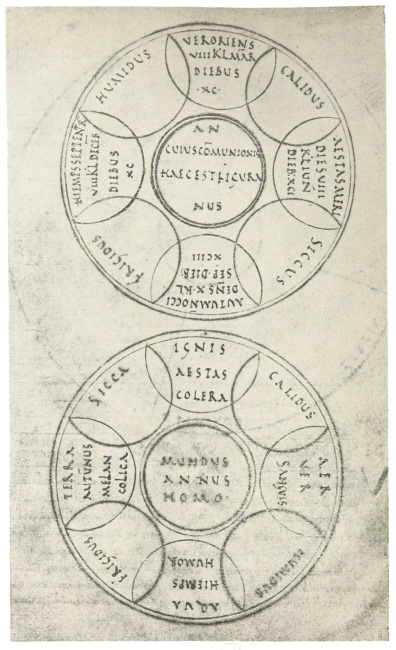 VERORIENS
VIIII KL MAR
DIEBUS
·XC·
CALIDUS
AESTAS MERI
DIES VIIII
KL IUN
DIEB XCI
SICCUS
AUTUMN OCCI
DENS X KL
SEP DIEB·
XCIII
FRIGIDUS
HIEMPS SEPTENTR
VIIII KL DECEB
DIEBUS
XC
HUMIDUS
AN
CUIUS COMUNIONIS
HAEC EST FIGURA
NUS
IGNIS
AESTAS
COLERA
CALIDUS
AER
VER
SANGUIS
HUMIDUS
AQUA
HIEMPS
HUMOR
FRIGIDUS
TERRA
AUTUNUS
MELAN
COLICA
SICCA
MUNDUS
ANNUS
HOMO·